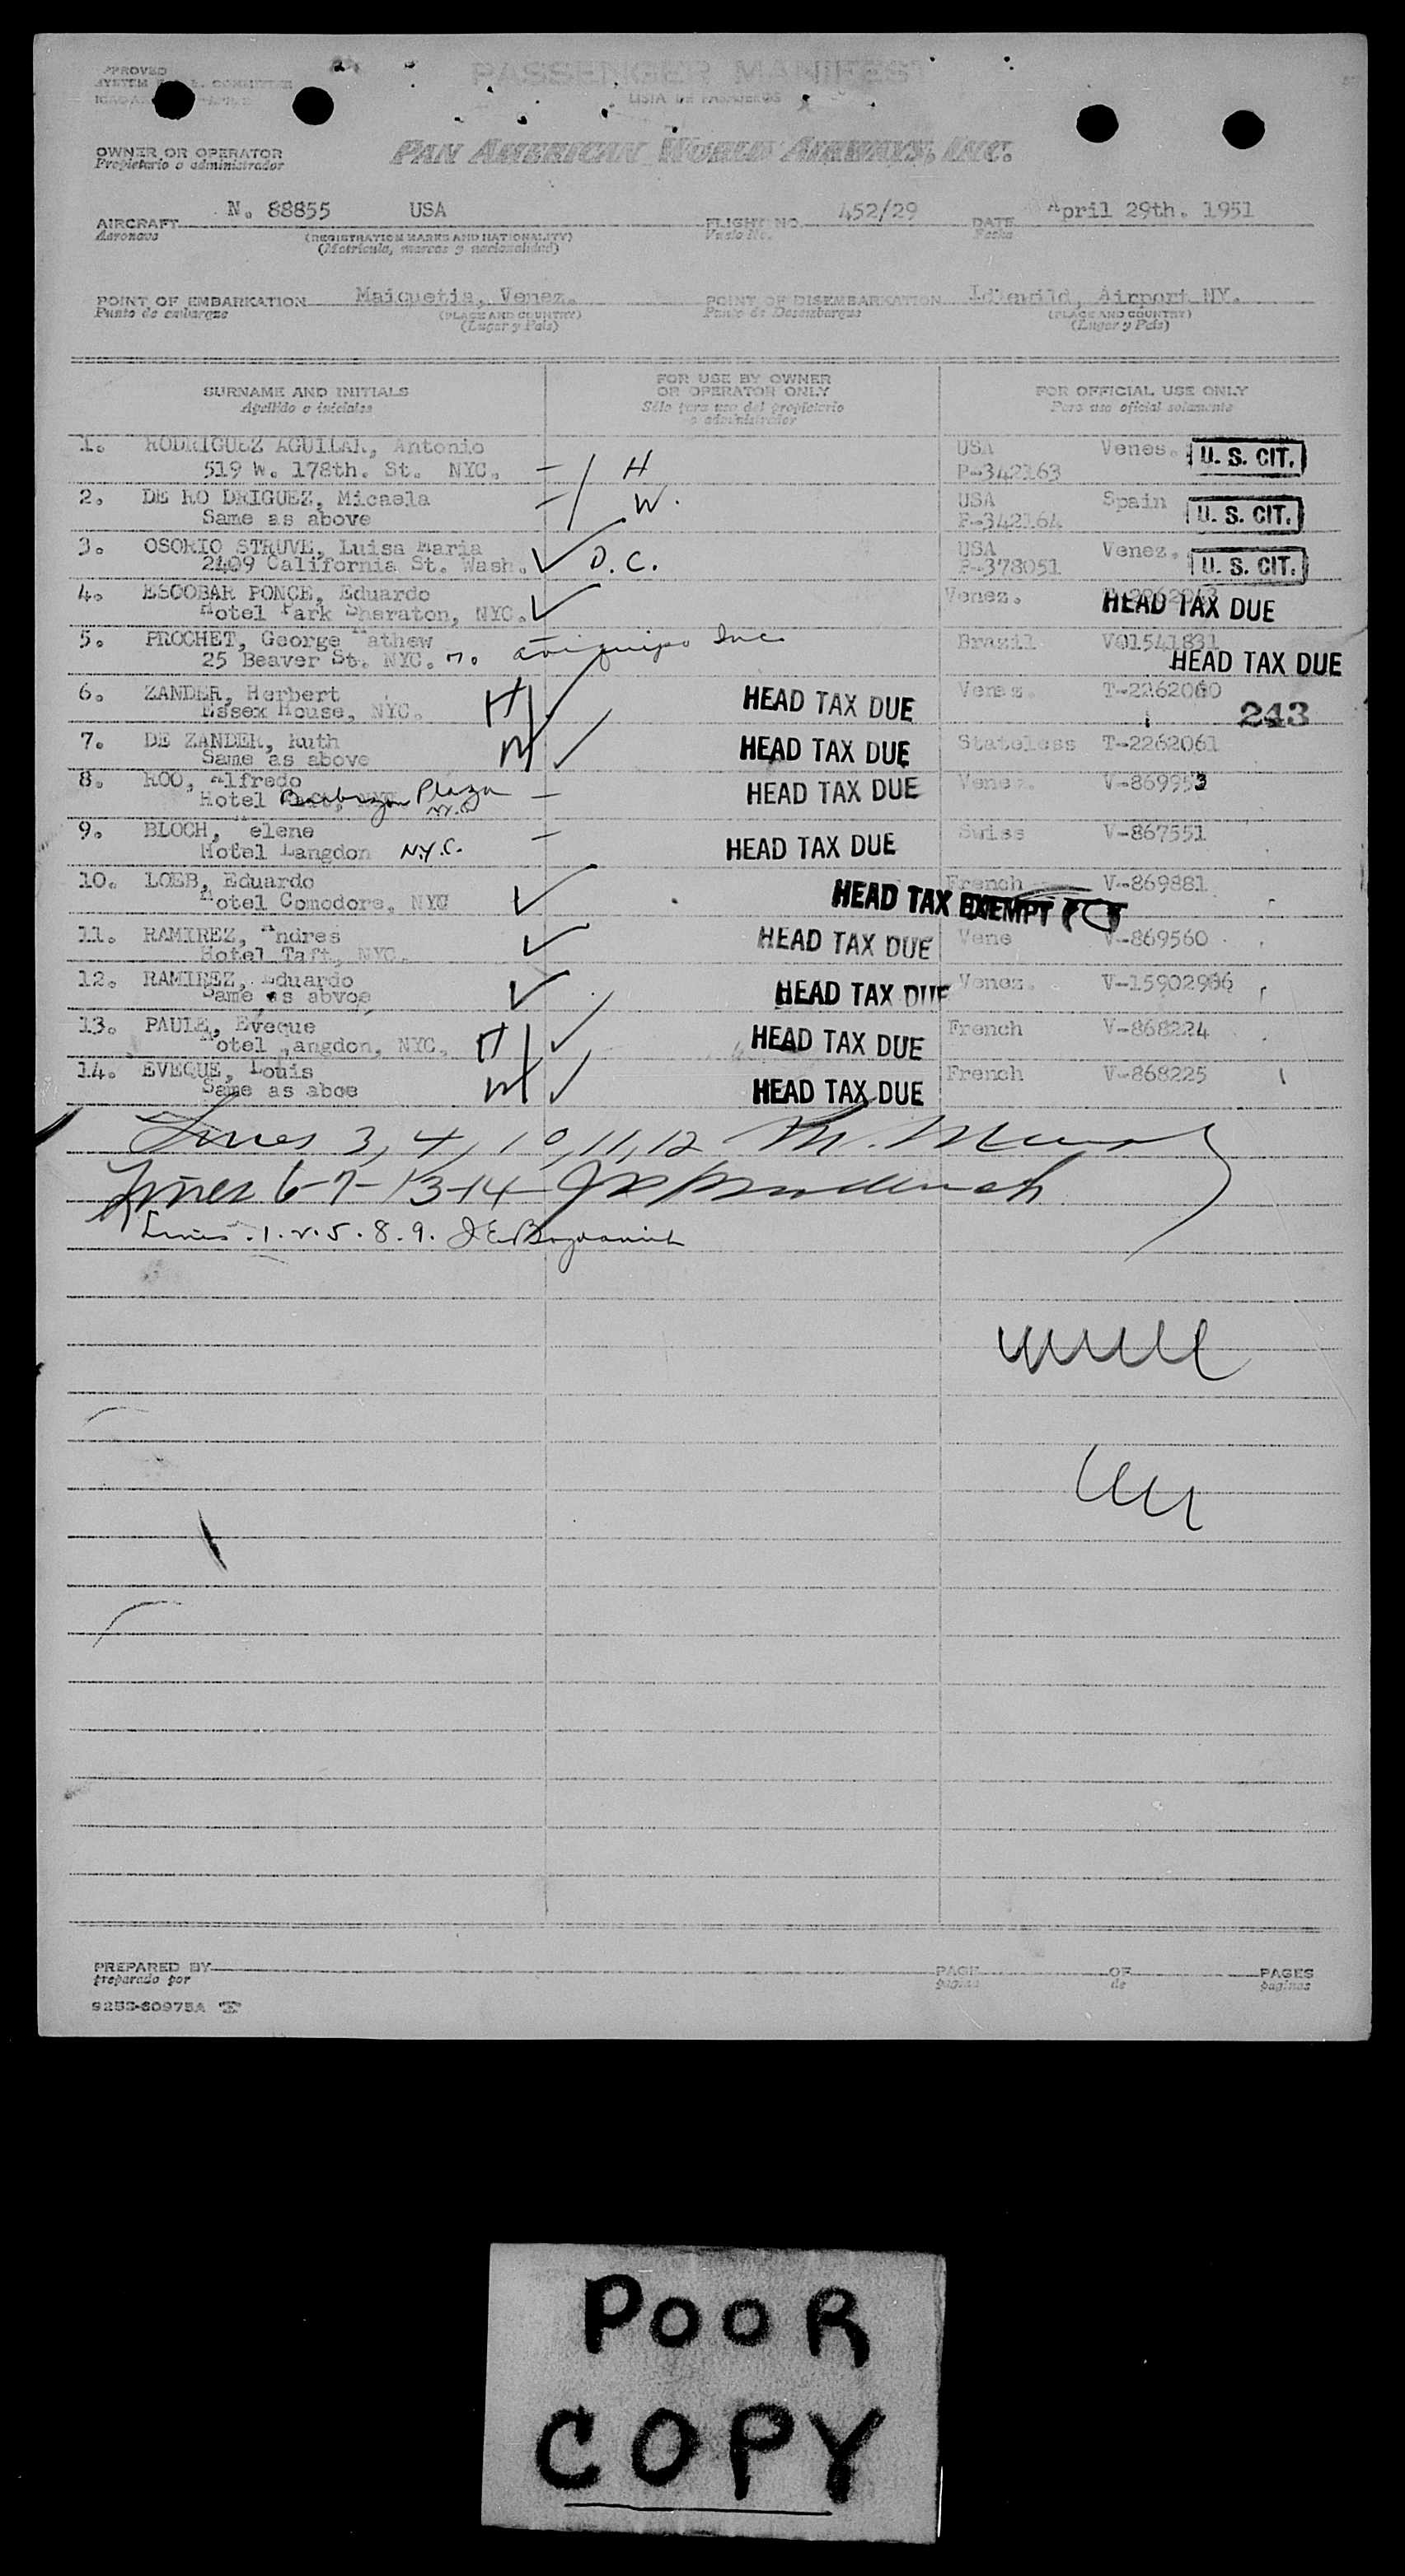 PASSENGER MANIFEST
LISTA DE PASAJEROS
OWNER OR OPERATOR
Propietario o administrador
PAN AMERICAN WORLD AIRWAYS, INC.
AIRCRAFT N. 88855 USA FLIGHT NO. 452/29 DATE April 29th. 1951
Aeronave (REGISTRATION MARKS AND NATIONALITY) Vuelo No. Fecha
(Matricula, marcas y nacionalidad)
POINT OF EMBARKATION Maiquetia, Venez. POINT OF DISEMBARKATION Idlewild, Airport NY.
Punto de embarque (PLACE AND COUNTRY) Punto de Desembarque (PLACE AND COUNTRY)
(Lugar y País) (Lugar y País)
SURNAME AND INITIALS FOR USE BY OWNER OR OPERATOR ONLY FOR OFFICIAL USE ONLY
Apellido e iniciales Sólo para uso del propietario o administrador Para uso oficial solamente
1. RODRIGUEZ AGUILAR, Antonio USA Venes. U. S. CIT.
519 W. 178th. St. NYC. H P-342163
2. DE RO DRIGUEZ, Micaela W. USA Spain U. S. CIT.
Same as above P-342164
3. OSORIO STRUVE, Luisa Maria USA Venez. U. S. CIT.
2409 California St. Wash. D.C. P-378051
4. ESCOBAR PONCE, Eduardo Venez. HEAD TAX DUE
Hotel Park Sheraton, NYC.
5. PROCHET, George Mathew Brazil V01541831
25 Beaver St. NYC. Inc HEAD TAX DUE
6. ZANDER, Herbert H HEAD TAX DUE Venes. T-2262060
Essex House, NYC. 243
7. DE ZANDER, Ruth HEAD TAX DUE Stateless T-2262061
Same as above
8. ROO, Alfredo HEAD TAX DUE Venez. V-869953
Hotel Barbizon Plaza NYC
9. BLOCH, Helene HEAD TAX DUE Swiss V-867551
Hotel Langdon N.Y.C.
10. LOEB, Eduardo HEAD TAX EXEMPT French V-869881
Hotel Comodore, NYC
11. RAMIREZ, Andres HEAD TAX DUE Vene V-869560
Hotel Taft, NYC.
12. RAMIREZ, Eduardo HEAD TAX DUE Venez. V-15902986
Same as abvoe
13. PAULE, Eveque H HEAD TAX DUE French V-868224
Hotel Langdon, NYC.
14. EVEQUE, Louis HEAD TAX DUE French V-868225
Same as aboe
Lines 3, 4, 10, 11, 12 M.
Lines 6-7-13-14
Lines. 1. 2. 5. 8. 9. J E Bogdanich
PREPARED BY PAGE OF PAGES
preparado por pagina de paginas
9253-60975A
POOR
COPY